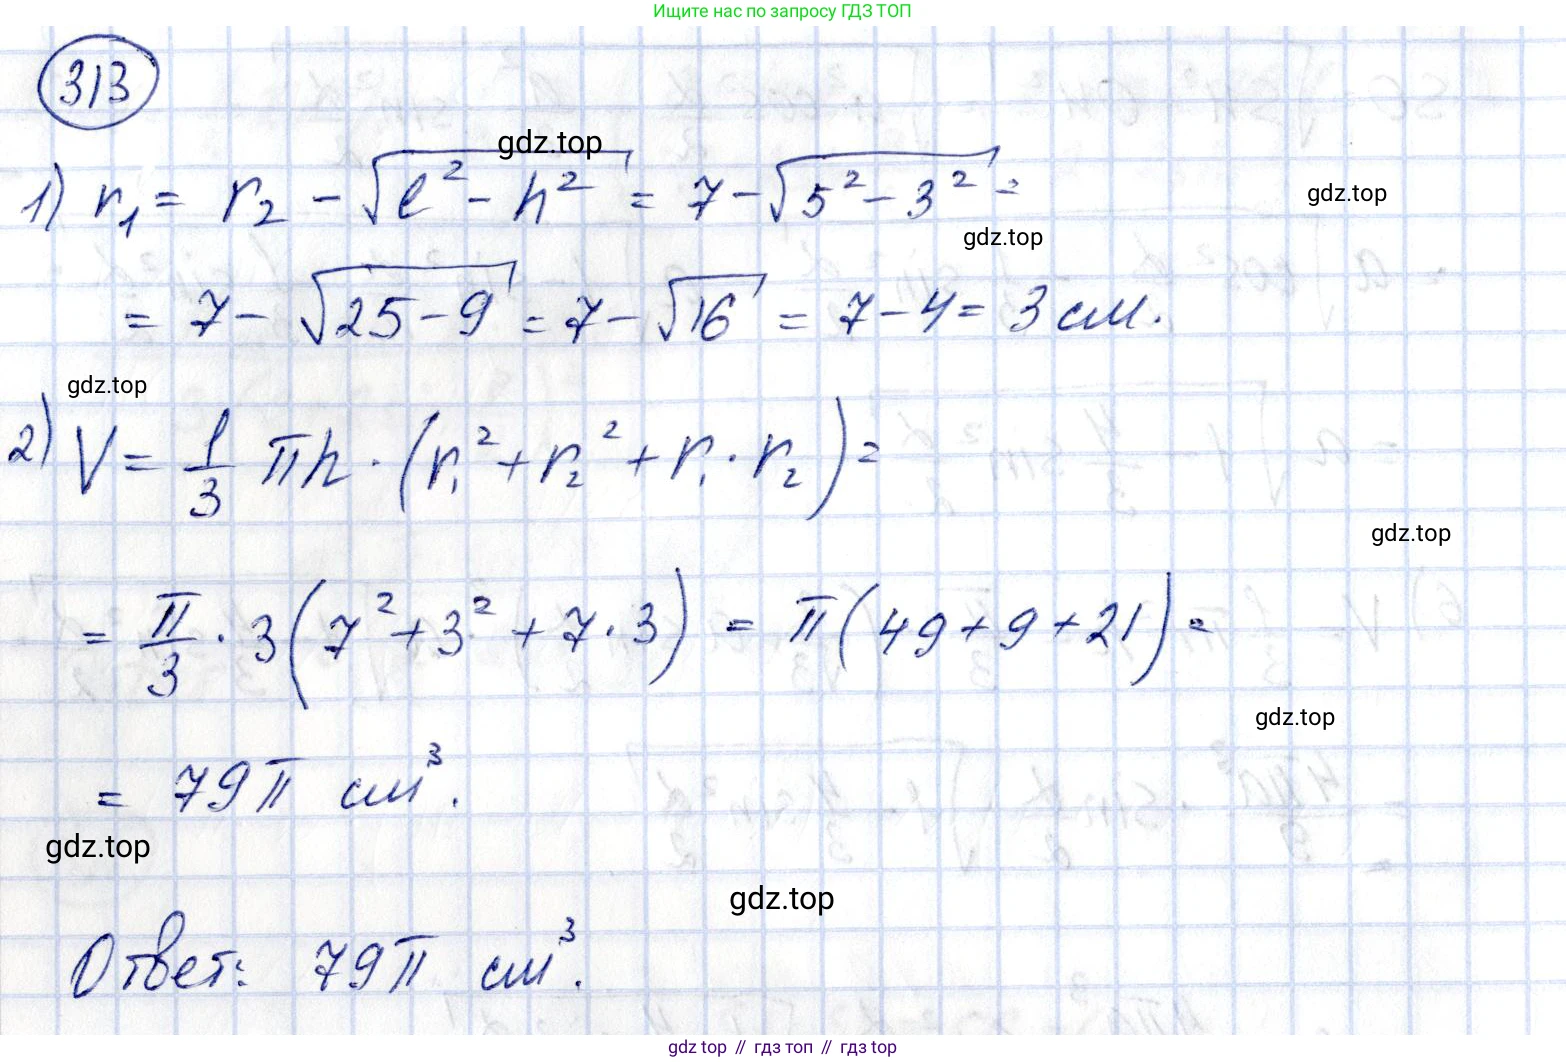 Ищите нас по запросу ГДЗ ТОП
313
gdz.top
1) r₁ = r₂ - √(l² - h²) = 7 - √(5² - 3²) =
gdz.top
gdz.top
= 7 - √(25 - 9) = 7 - √16 = 7 - 4 = 3 см.
gdz.top
2) V = 1/3 πh · (r₁² + r₂² + r₁ · r₂) =
gdz.top
= π/3 · 3 (7² + 3² + 7 · 3) = π (49 + 9 + 21) =
gdz.top
= 79π см³.
gdz.top
gdz.top
Ответ: 79π см³.
gdz top // гдз топ // гдз top